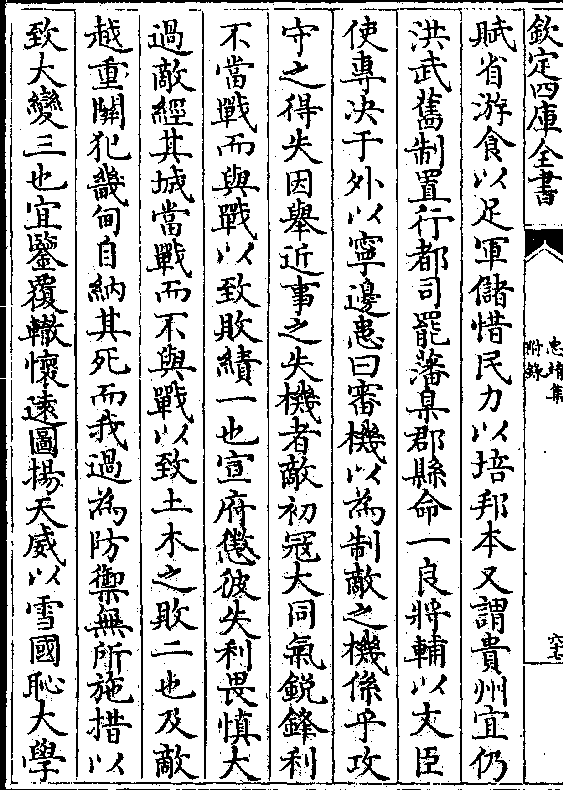 欽定四庫全書
忠靖集
附錄
六七
賦省游食以足軍儲惜民力以培邦本又謂貴州宜仍
洪武舊制置行都司罷藩臬郡縣命一良將輔以文臣
使專決于外以寧邊患曰審機以為制敵之機係乎攻
守之得失因舉近事之失機者敵初冦大同氣銳鋒利
不當戰而與戰以致敗績一也宣府懲彼失利畏慎大
過敵經其城當戰而不與戰以致土木之敗二也及敵
越重關犯畿甸自納其死而我過為防禦無所施措以
致大變三也宜鑒覆轍懷遠圖揚天威以雪國恥大學